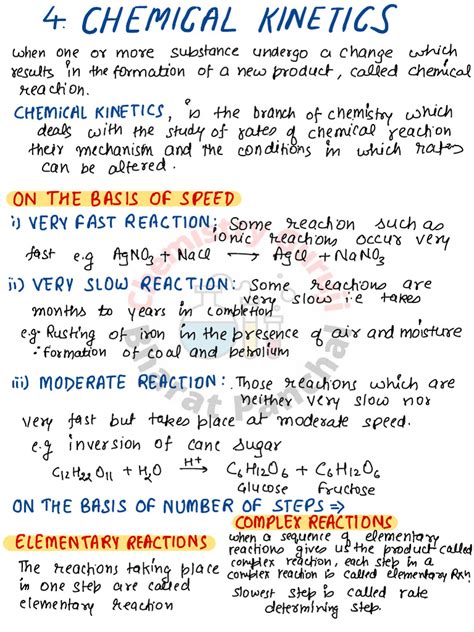 4. CHEMICAL KINETICS
when one or more substance undergo a change which
results in the formation of a new product, called chemical
reaction.
CHEMICAL KINETICS, is the branch of chemistry which
deals with the study of rates of chemical reaction
their mechanism and the conditions in which rates
can be altered.
ON THE BASIS OF SPEED
i) VERY FAST REACTION: Some reaction such as
ionic reactions occur very
fast e.g AgNO3 + NaCl ⟶ AgCl + NaNO3
ii) VERY SLOW REACTION: Some reactions are
very slow i.e takes
months to years in completion
e.g: Rusting of iron in the presence of air and moisture
: Formation of coal and petrolium
iii) MODERATE REACTION: Those reactions which are
neither very slow nor
very fast but takes place at moderate speed.
e.g inversion of cane sugar
C12H22O11 + H2O H+⟶ C6H12O6 + C6H12O6
Glucose Fructose
ON THE BASIS OF NUMBER OF STEPS ⇒
ELEMENTARY REACTIONS
The reactions taking place
in one step are called
elementary reaction
COMPLEX REACTIONS
when a sequence of elementary
reactions gives us the product called
complex reaction, each step in a
complex reaction is called elementary Rxn.
slowest step is called rate
determining step.
Chemistry Guruji
Bharat Panchal